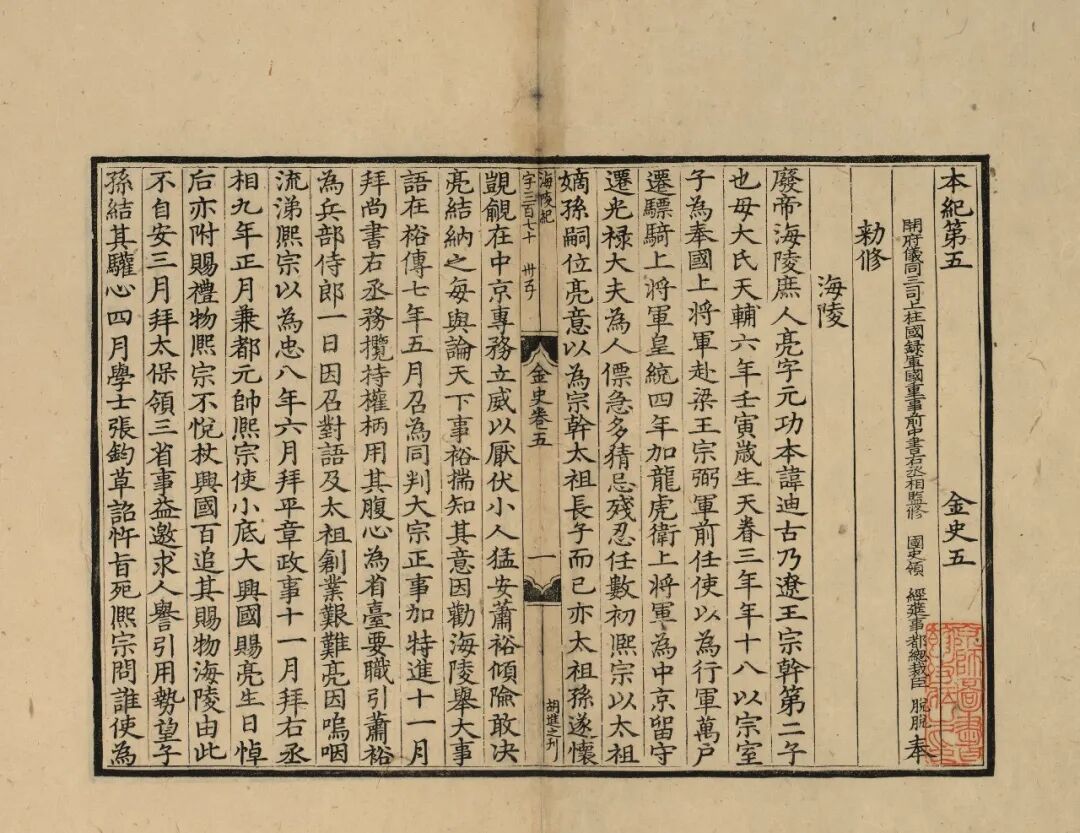 本紀第五　金史五
開府儀同三司上柱國錄軍國重事前中書右丞相監修　國史領　經筵事都總裁臣　脫脫　奉
勑修
海陵
廢帝海陵庶人亮字元功本諱迪古乃遼王宗幹第二子
也母大氏天輔六年壬寅歲生天眷三年年十八以宗室
子為奉國上將軍赴梁王宗弼軍前任使以為行軍萬戶
遷驃騎上將軍皇統四年加龍虎衛上將軍為中京留守
遷光祿大夫為人僄急多猜忌殘忍任數初熙宗以太祖
嫡孫嗣位亮意以為宗幹太祖長子而己亦太祖孫遂懷
海陵紀
字三百七十　卅五子
金史卷五
一
胡進之刊
覬覦在中京專務立威以厭伏小人猛安蕭裕傾險敢決
亮結納之每與論天下事裕揣知其意因勸海陵舉大事
語在裕傳七年五月召為同判大宗正事加特進十一月
拜尚書右丞務攬持權柄用其腹心為省臺要職引蕭裕
為兵部侍郎一日因召對語及太祖創業艱難亮因嗚咽
流涕熙宗以為忠八年六月拜平章政事十一月拜右丞
相九年正月兼都元帥熙宗使小底大興國賜亮生日悼
后亦附賜禮物熙宗不悅杖興國百追其賜物海陵由此
不自安三月拜太保領三省事益邀求人譽引用勢望子
孫結其驩心四月學士張鈞草詔忤旨死熙宗問誰使為